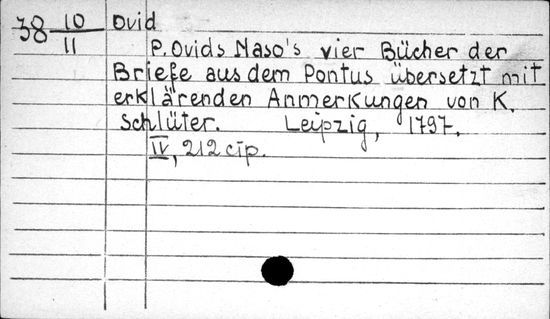 38 10/11 Ovid
P. Ovids Naso's vier Bücher der
Briefe aus dem Pontus übersetzt mit
erklärenden Anmerkungen von K.
Schlüter. Leipzig, 1797.
IV, 212 cip.